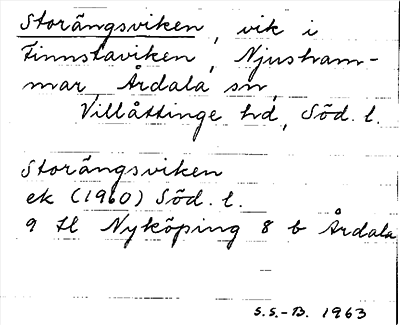 Storängsviken, vik i
Finnstaviken, Njusham-
mar, Årdala sn,
Villåttinge hd, Söd. l.
Storängsviken
ek (1960) Söd. l.
9 H Nyköping 8 b Årdala
S.S.-B. 1963